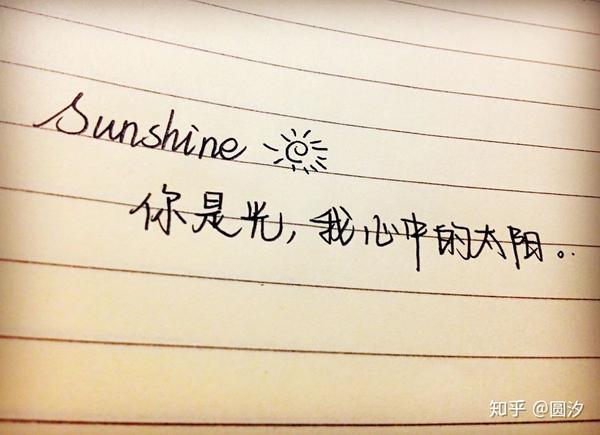 Sunshine
你是光，我心中的太阳。
知乎 @圆汐